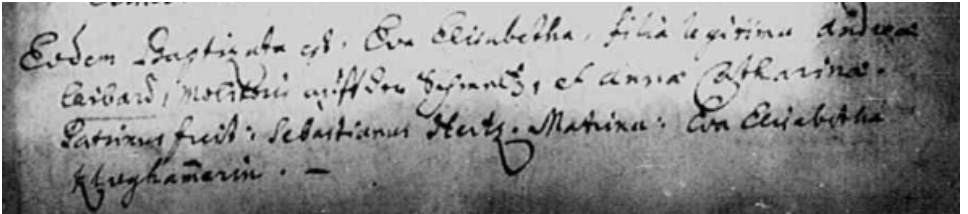 Eodem Baptizata est. Eva Elisabetha, filia legitima Andreæ
Leibard, Molitoris uff der Schmeltz, et Annæ Catharinæ.
Patrinus fuit: Sebastianus Hertz. Matrina: Eva Elisabetha